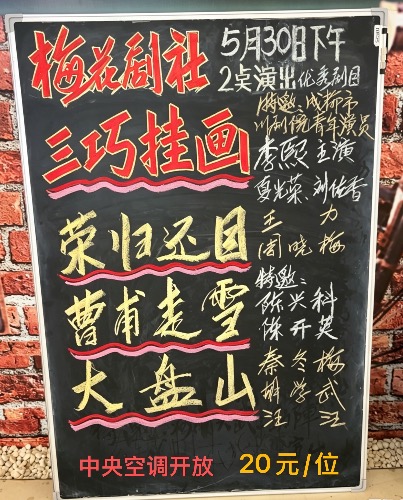 梅花剧社
5月30日下午
2点演出优秀剧目
特邀:成都市
川剧院青年演员
三巧挂画
李熙 主演
夏光荣、刘佑香
荣归还目
王 力
闻晓梅
特邀:
曹甫走雪
陈兴科
陈开英
大盘山
秦冬梅
学武
汪 江
中央空调开放 20元/位